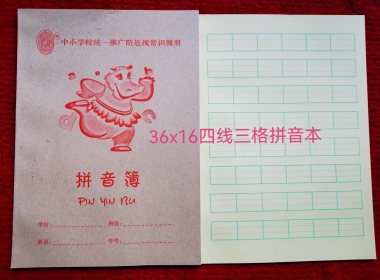 中小学校统一推广防近视常识簿册
36x16四线三格拼音本
拼音簿
PIN YIN BU
学校: 班级:
姓名: 学号: